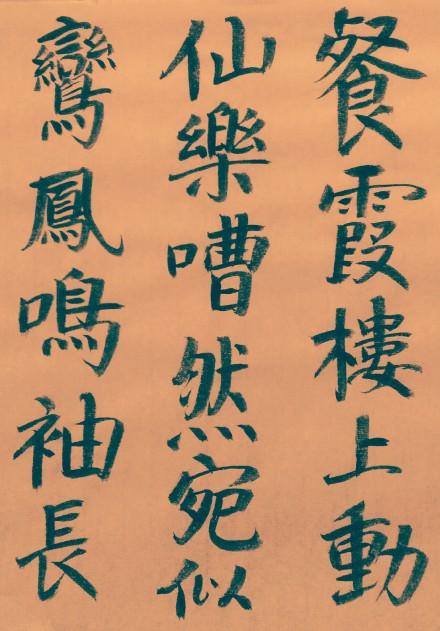 餐霞樓上動
仙樂嘈然宛似
鸞鳳鳴袖長